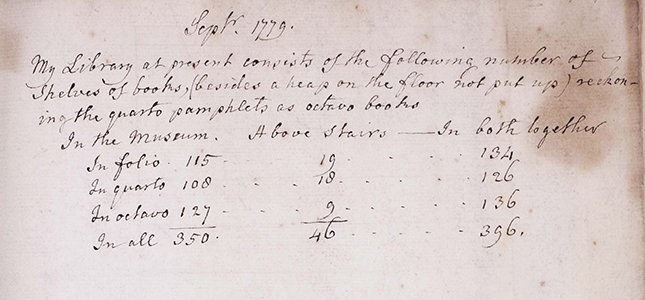 Septr. 1779.
My Library at present consists of the following number of
Shelves of books, (besides a heap on the floor not put up) reckon-
ing the quarto pamphlets as octavo books
In the Museum. Above Stairs — In both together
In folio 115 . . . 19 . . . . . 134
In quarto 108 . . . 18 . . . . . 126
In octavo 127 . . . . 9 . . . . . 136
In all 350 . . . . 46 . . . . . 396.